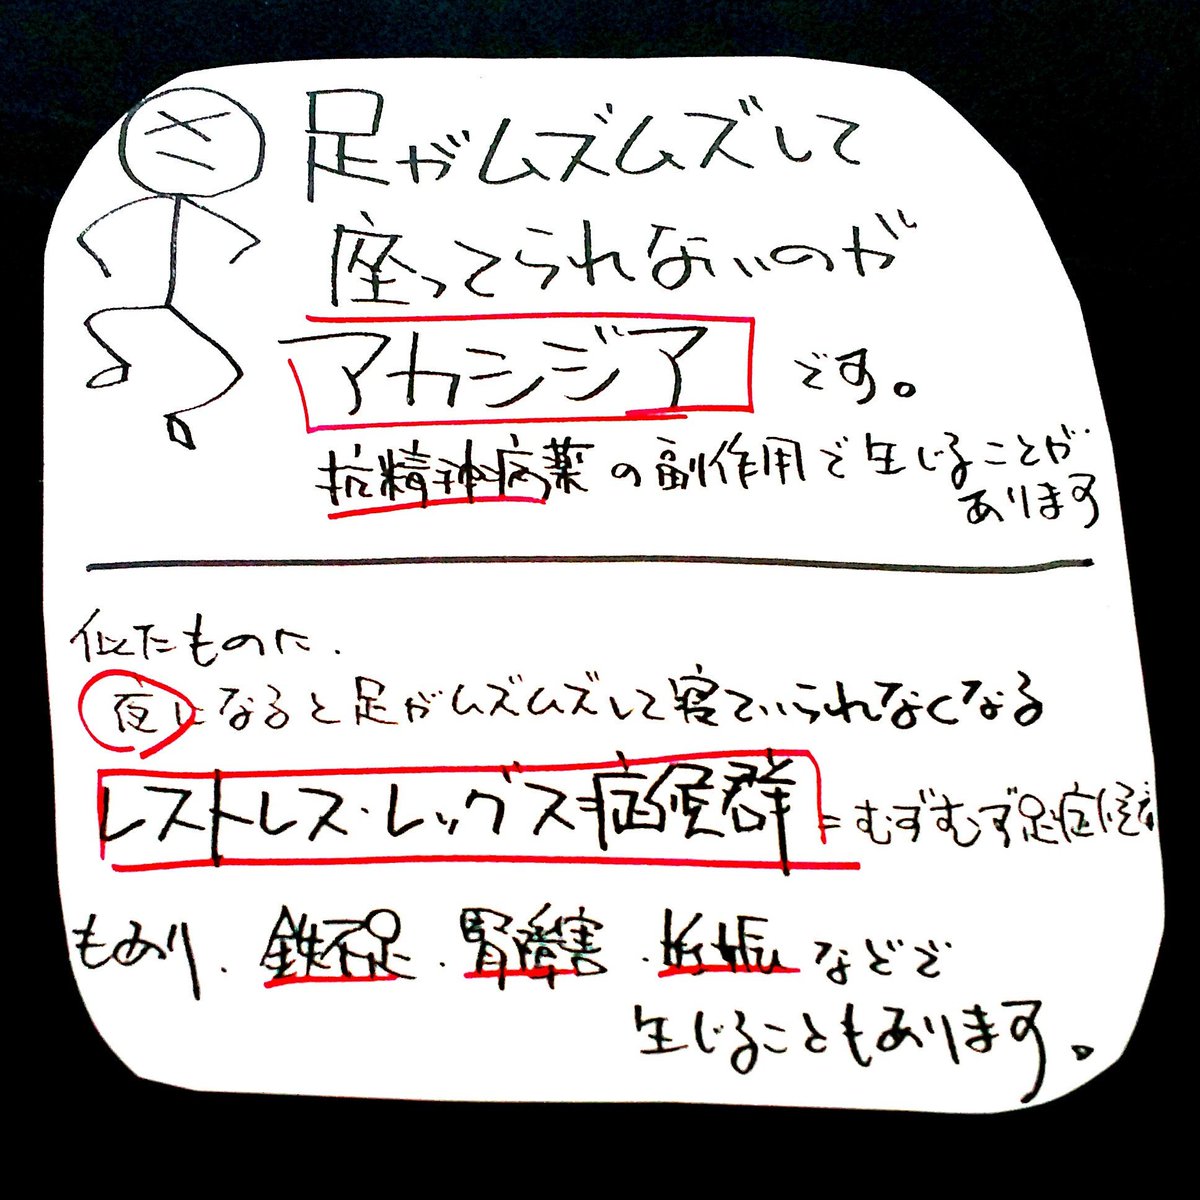 足がムズムズして
座ってられないのが
アカシジア です。
抗精神病薬の副作用で生じることが
あります
似たものに、
夜になると足がムズムズして寝ていられなくなる
レストレス・レッグス症候群=むずむず足症候群
もあり、鉄不足、腎障害、妊娠などで
生じることもあります。